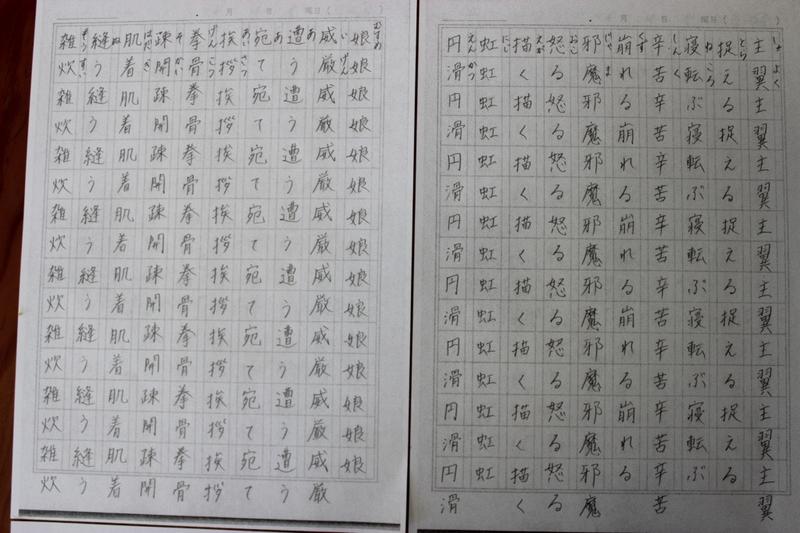 主翼主翼主翼主翼主翼主翼主翼主翼
しゅよく
捉える捉える捉える捉える捉える
とら
寝転ぶ寝転ぶ寝転ぶ寝転ぶ寝転ぶ
ねころ
辛苦辛苦辛苦辛苦辛苦辛苦辛苦辛苦
しんく
崩れる崩れる崩れる崩れる崩れる
くず
邪魔邪魔邪魔邪魔邪魔邪魔邪魔邪魔
じゃま
怒る怒る怒る怒る怒る怒る怒る怒る
おこ
描く描く描く描く描く描く描く描く
えが
虹虹虹虹虹虹虹虹虹虹虹虹虹虹虹
にじ
円滑円滑円滑円滑円滑円滑円滑円滑
えんかつ
娘娘娘娘娘娘娘娘娘娘娘娘娘娘娘
むすめ
威厳威厳威厳威厳威厳威厳威厳威厳
いげん
遭う遭う遭う遭う遭う遭う遭う遭う
あ
宛て宛て宛て宛て宛て宛て宛て宛て
あ
挨拶挨拶挨拶挨拶挨拶挨拶挨拶挨拶
あいさつ
拳骨拳骨拳骨拳骨拳骨拳骨拳骨拳骨
げんこつ
疎開疎開疎開疎開疎開疎開疎開疎開
そかい
肌着肌着肌着肌着肌着肌着肌着肌着
はだぎ
縫う縫う縫う縫う縫う縫う縫う縫う
ぬ
雑炊雑炊雑炊雑炊雑炊雑炊雑炊雑炊
ぞうすい